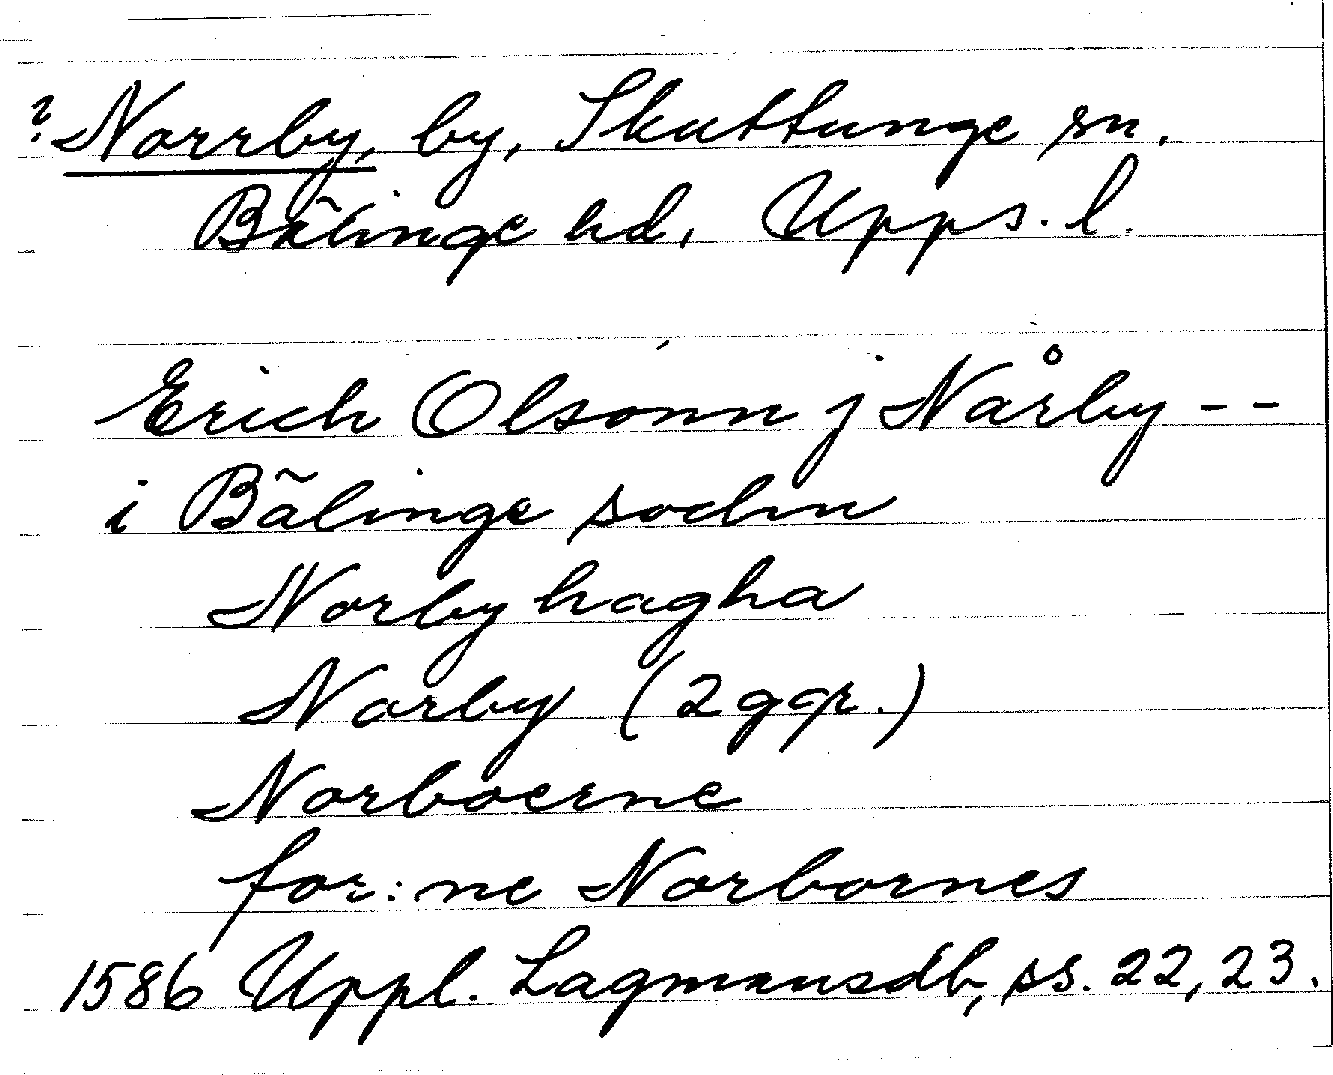 ? Norrby, by, Skuttunge sn.
Bälinge hd, Upps. l.
Erich Olsónn j Nårby - -
i Bãlinge sochn
Norbyhagha
Norby (2 ggr.)
Norboerne
for:ne Norbornes
1586 Uppl. Lagmansdb, ss. 22, 23.